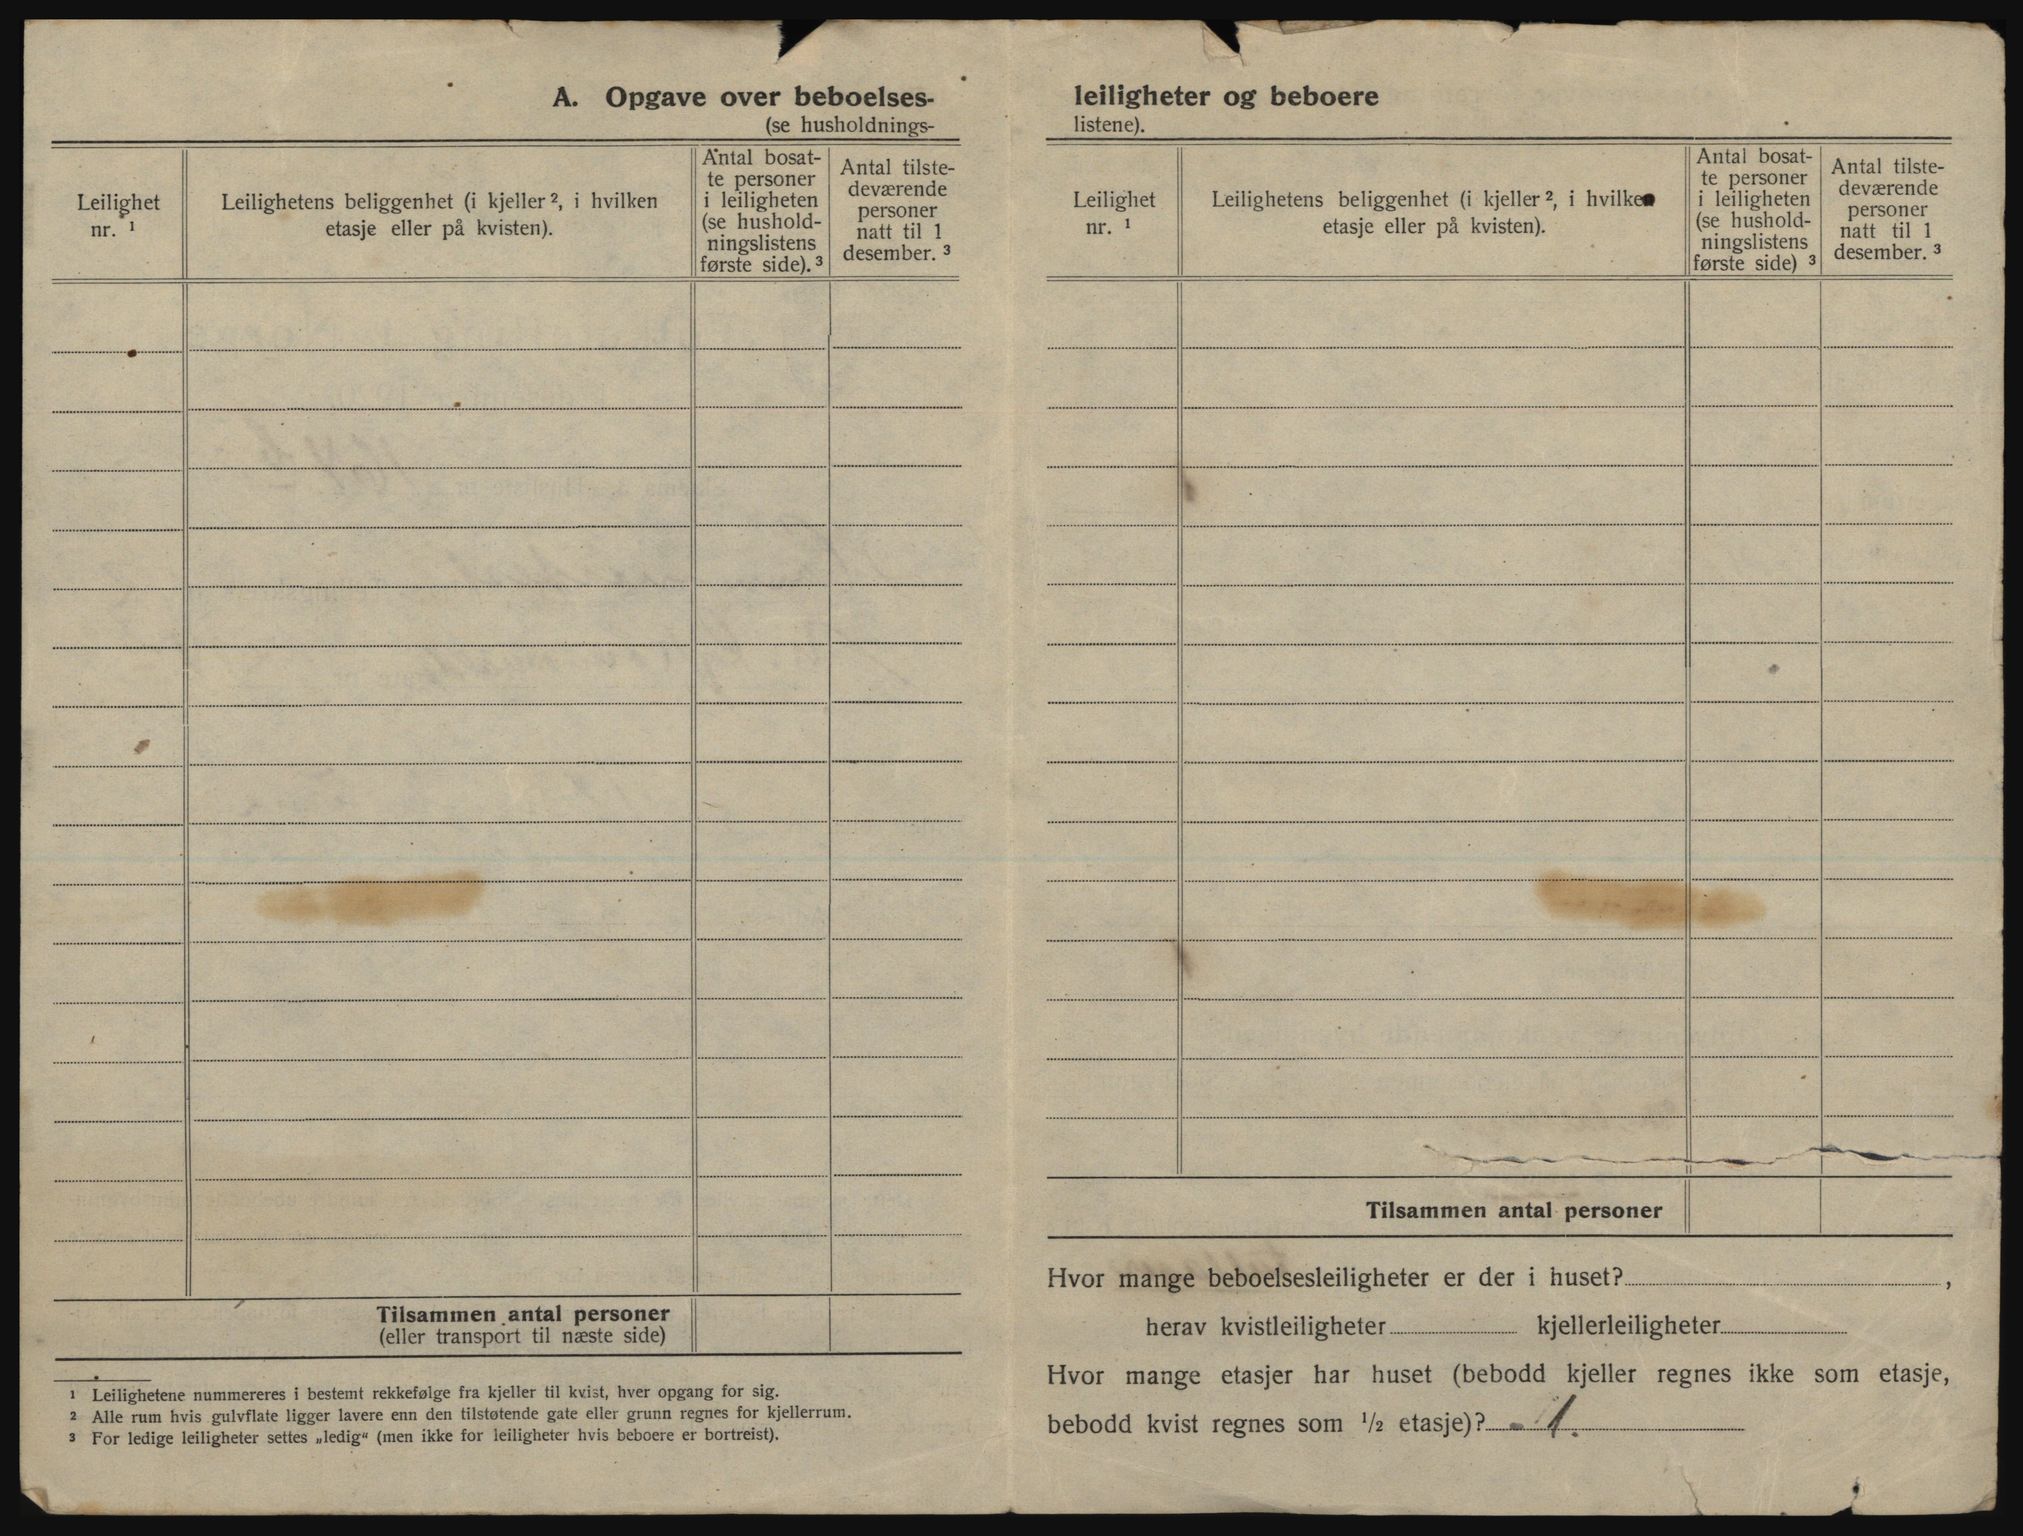 A. Opgave over beboelses-
(se husholdnings-
Leilighet
nr. ¹
Leilighetens beliggenhet (i kjeller ², i hvilken
etasje eller på kvisten).
Antal bosat-
te personer
i leiligheten
(se hushold-
ningslistens
første side). ³
Antal tilste-
deværende
personer
natt til 1
desember. ³
Tilsammen antal personer
(eller transport til næste side)
¹ Leilighetene nummereres i bestemt rekkefølge fra kjeller til kvist, hver opgang for sig.
² Alle rum hvis gulvflate ligger lavere enn den tilstøtende gate eller grunn regnes for kjellerrum.
³ For ledige leiligheter settes „ledig“ (men ikke for leiligheter hvis beboere er bortreist).
leiligheter og beboere
listene).
Leilighet
nr. ¹
Leilighetens beliggenhet (i kjeller ², i hvilken
etasje eller på kvisten).
Antal bosat-
te personer
i leiligheten
(se hushold-
ningslistens
første side) ³
Antal tilste-
deværende
personer
natt til 1
desember. ³
Tilsammen antal personer
Hvor mange beboelsesleiligheter er der i huset? ,
herav kvistleiligheter kjellerleiligheter
Hvor mange etasjer har huset (bebodd kjeller regnes ikke som etasje,
bebodd kvist regnes som ½ etasje)? - 1.